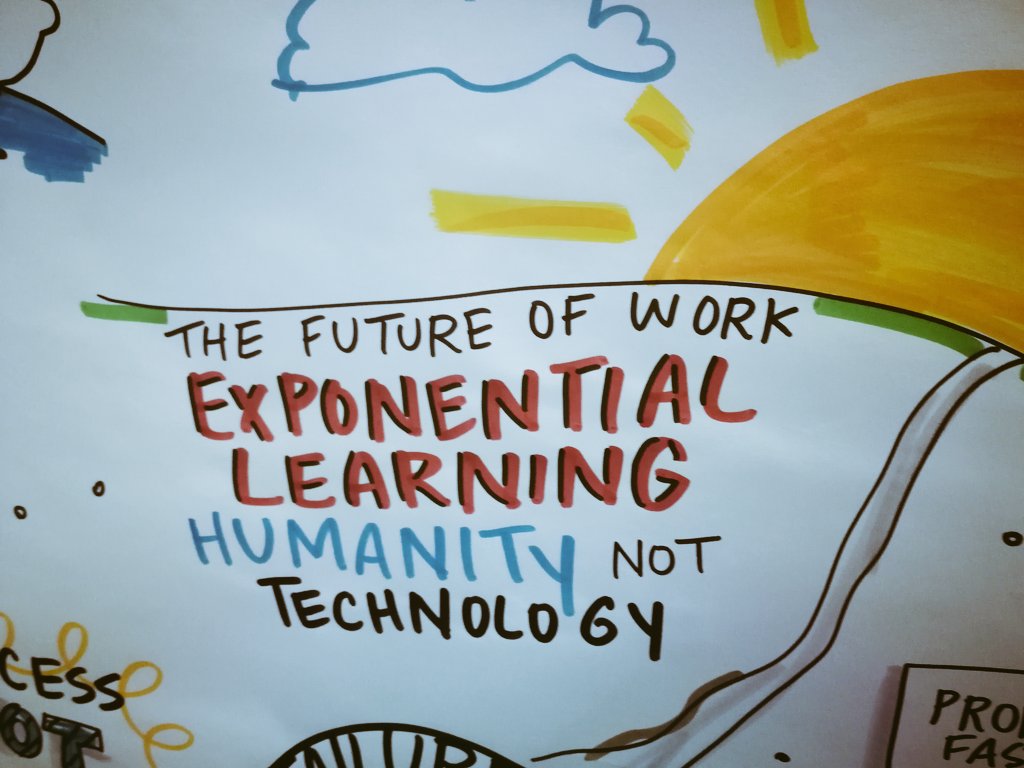 THE FUTURE OF WORK
EXPONENTIAL
LEARNING
HUMANITY NOT
TECHNOLOGY